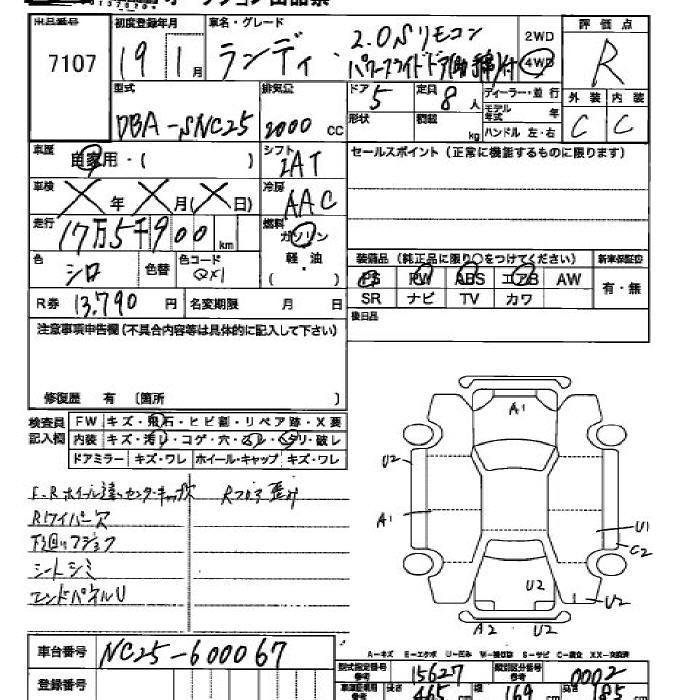 出品番号 初度登録年月 車名・グレード 評価点
7107 19 1月 ランディ 2.0Sリモコン 2WD 4WD R
型式 排気公 ドア 5 定員 8人 ディーラー・並行 外装 内装
DBA-SNC25 2000 CC 形状 積載 kg モデル年式 年 ハンドル 左・右 C C
車歴 自家用・( ) シフト IAT セールスポイント(正常に機能するものに限ります)
車検 年 月( 日) 冷房 AAC
走行 17万5千900 km 燃料 ガソリン 軽・油 ( )
色 シロ 色替 色コード QX1
装備品(純正品に限り○をつけてください) 新車保証印
PS PW ABS エアB AW 有・無
SR ナビ TV カワ
R券 13,790円 名変期限 月 日
後日品
注意事項申告欄(不具合内容等は具体的に記入して下さい)
修復歴 有 〔箇所 〕
検査員記入欄 FW キズ・飛石・ヒビ割・リペア跡・X要
内装 キズ・汚レ・コゲ・穴・スレ・ヘタリ・破レ
ドアミラー キズ・ワレ ホイール・キャップ キズ・ワレ
F.Rホイール違いセンターキャップ欠
Rワイパー欠
下廻りサビ
シートシミ
エンドパネルU
Rフロア歪み
A1
U2
A1
U1
C2
U2
U2
A2 U2
A-キズ E-エクボ U-凹み W-補修跡 S-サビ C-腐食 XX-交換済
車台番号 NC25-600067
登録番号
型式指定番号 15627 類別区分番号 0002
長さ 465 cm 幅 169 cm 高さ 185 cm